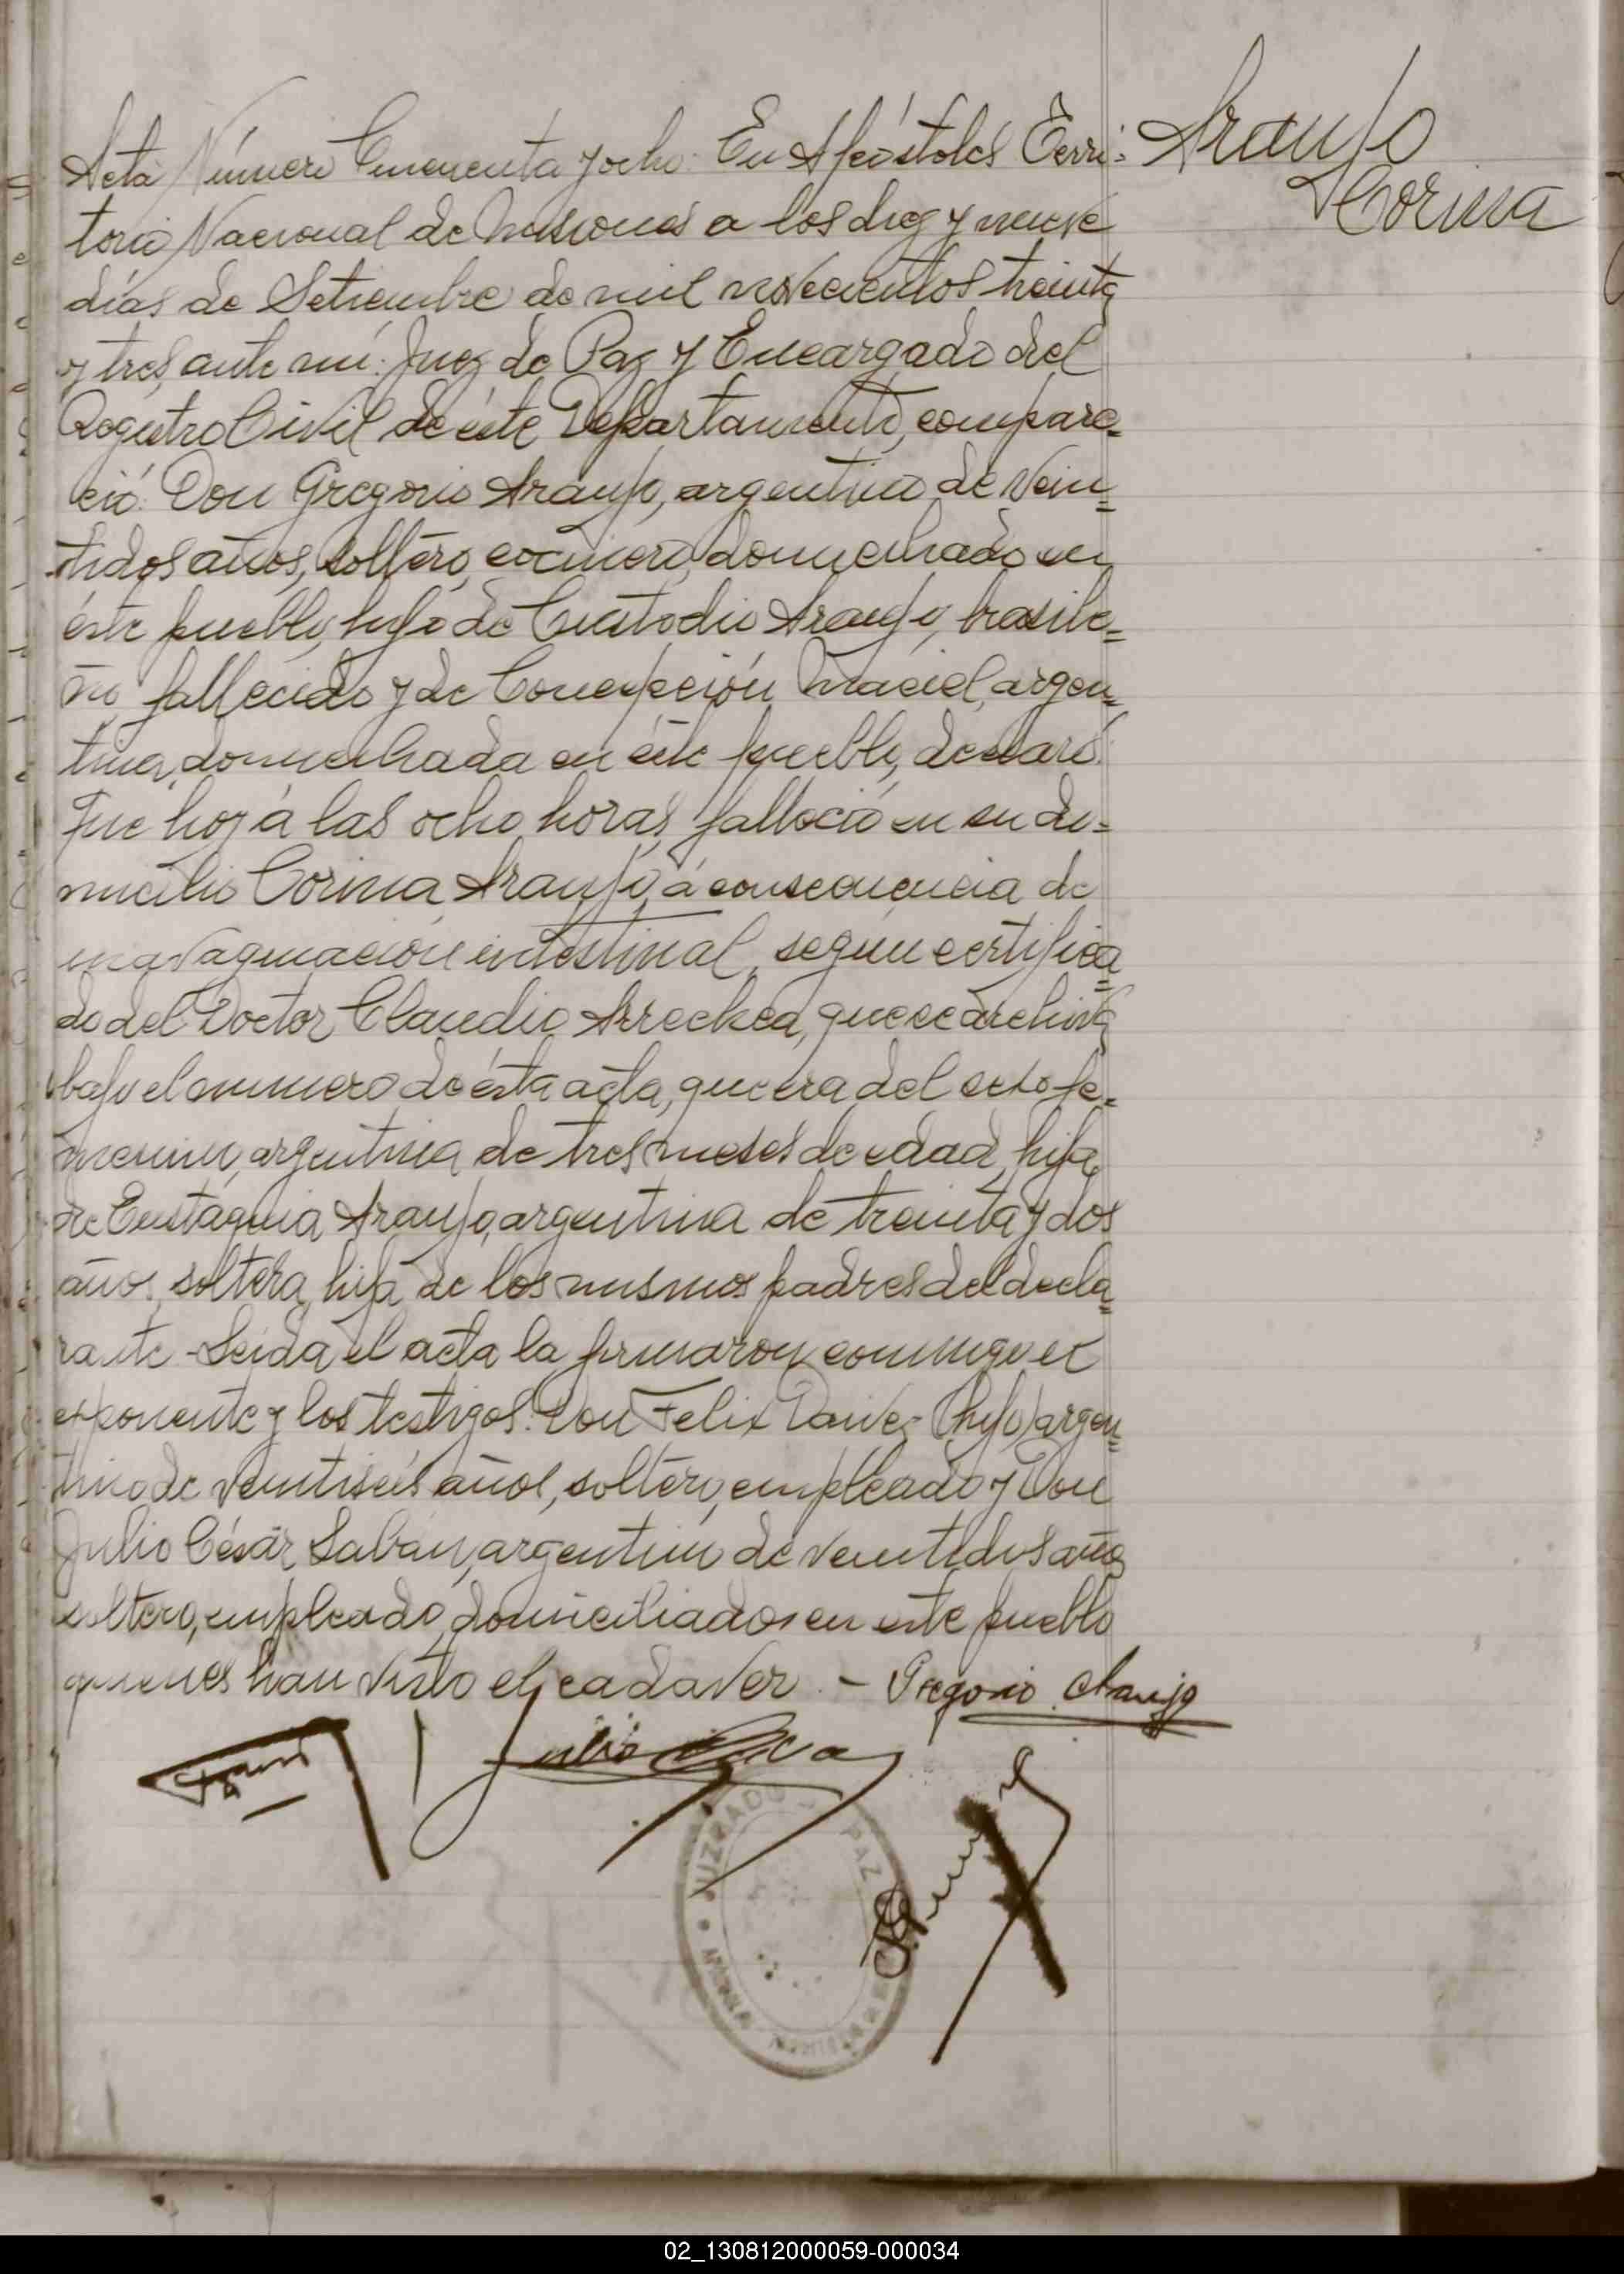 Araujo
Corina
Acta Número Cincuenta y ocho: En Apóstoles Terri=
torio Nacional de Misiones a los diez y nueve
días de Setiembre de mil novecientos treinta
y tres, ante mí: Juez de Paz y Encargado del
Registro Civil de éste Departamento, compare=
ció: Don Gregorio Araujo, argentino, de vein=
tidos años, soltero, cocinero, domiciliado en
éste pueblo, hijo de Custodio Araujo, brasile=
ño fallecido y de Concepción Maciel, argen=
tina, domiciliada en éste pueblo, declaró:
Que hoy á las ocho horas, falleció en su do=
micilio Corina Araujo, á consecuencia de
invaginación intestinal, según certifica=
do del Doctor Claudio Arrechea, que se archiva
bajo el numero de ésta acta, que era del sexo fe=
menino, argentina, de tres meses de edad, hija
de Eustaquia Araujo, argentina de treinta y dos
años, soltera, hija de los mismos padres del decla=
rante - Leida el acta la firmaron conmigo el
exponente y los testigos: Don Felix (hijo) argen=
tino de veintiseis años, soltero, empleado y Don
Julio César Labán, argentino de veintidos años
soltero, empleado, domiciliados en este pueblo
quienes han visto el cadaver. - Gregorio Araujo
JUZGADO PAZ
02_130812000059-000034